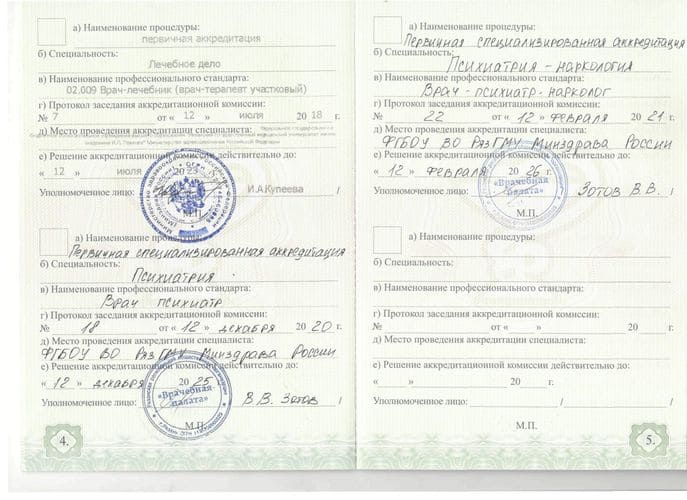 а) Наименование процедуры:
первичная аккредитация
б) Специальность:
Лечебное дело
в) Наименование профессионального стандарта:
02.009 Врач-лечебник (врач-терапевт участковый)
г) Протокол заседания аккредитационной комиссии:
№ 7 от « 12 » июля 20 18 г.
д) Место проведения аккредитации специалиста:
академика И.П. Павлова" Министерства здравоохранения Российской Федерации
е) Решение аккредитационной комиссии действительно до:
« 12 » июля 2023
Уполномоченное лицо: И.А.Купеева /
М.П.
а) Наименование процедуры:
Первичная специализированная аккредитация
б) Специальность:
Психиатрия.
в) Наименование профессионального стандарта:
Врач психиатр
г) Протокол заседания аккредитационной комиссии:
№ 18 от « 12 » декабря 20 20 г.
д) Место проведения аккредитации специалиста:
ФГБОУ ВО РязГМУ Минздрава России
е) Решение аккредитационной комиссии действительно до:
« 12 » декабря 20 25
«Врачебная палата»
Уполномоченное лицо: В.В. Зотов /
М.П.
4.
а) Наименование процедуры:
Первичная специализированная аккредитация
б) Специальность:
Психиатрия - наркология
в) Наименование профессионального стандарта:
Врач - психиатр - нарколог
г) Протокол заседания аккредитационной комиссии:
№ 22 от « 12 » февраля 20 21 г.
д) Место проведения аккредитации специалиста:
ФГБОУ ВО РязГМУ Минздрава России
е) Решение аккредитационной комиссии действительно до:
« 12 » февраля 20 26 г.
«Врачебная палата»
Уполномоченное лицо: / Зотов В.В. /
М.П.
а) Наименование процедуры:
б) Специальность:
в) Наименование профессионального стандарта:
г) Протокол заседания аккредитационной комиссии:
№ от « » 20 г.
д) Место проведения аккредитации специалиста:
е) Решение аккредитационной комиссии действительно до:
« » 20 г.
Уполномоченное лицо: / /
М.П.
5.